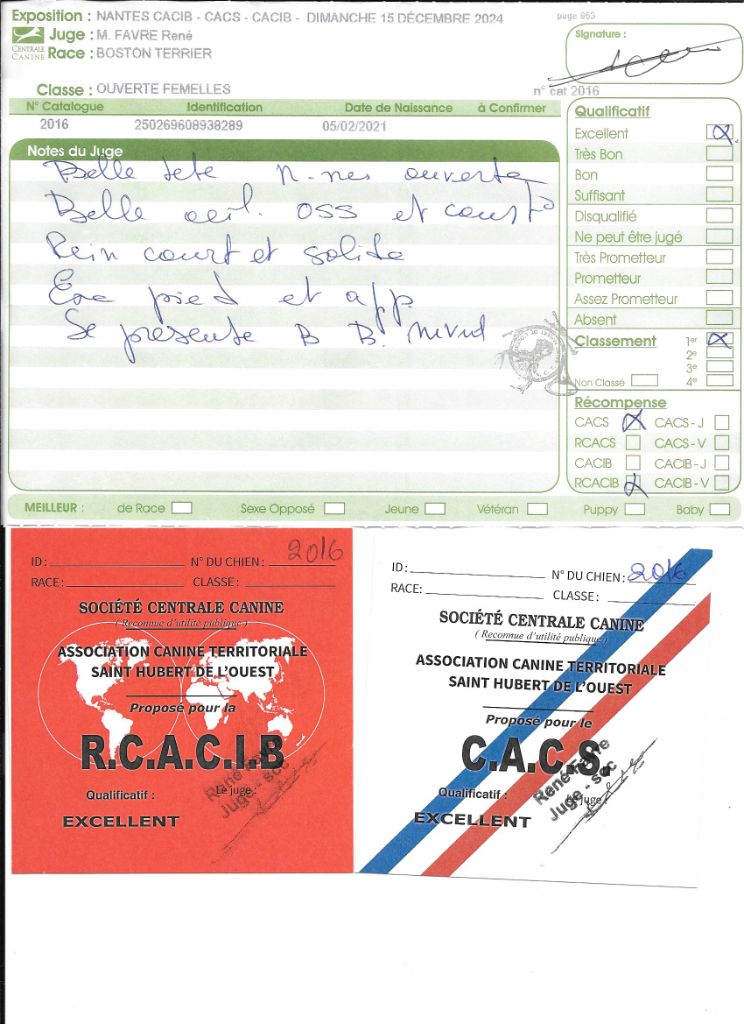 Exposition : NANTES CACIB - CACS - CACIB - DIMANCHE 15 DÉCEMBRE 2024
page 953
CENTRALE CANINE
Juge : M. FAVRE René
Race : BOSTON TERRIER
Signature :
Classe : OUVERTE FEMELLES
n° cat 2016
N° Catalogue Identification Date de Naissance à Confirmer
2016 250269608938289 05/02/2021
Notes du Juge
Belle tete N. nes ouverte
Belle oeil. OSS et const
Rein court et solide
Exc pied et app.
Se présente B B.
Qualificatif
Excellent X
Très Bon
Bon
Suffisant
Disqualifié
Ne peut être jugé
Très Prometteur
Prometteur
Assez Prometteur
Absent
Classement 1er X
2e
3e
Non Classé 4e
Récompense
CACS X CACS - J
RCACS CACS - V
CACIB CACIB - J
RCACIB X CACIB - V
MEILLEUR : de Race Sexe Opposé Jeune Vétéran Puppy Baby
ID : N° DU CHIEN : 2016
RACE : CLASSE :
SOCIÉTÉ CENTRALE CANINE
( Reconnue d'utilité publique )
ASSOCIATION CANINE TERRITORIALE
SAINT HUBERT DE L'OUEST
Proposé pour la
R.C.A.C.I.B
Qualificatif : Le juge :
EXCELLENT
René Favre
Juge - scc
ID : N° DU CHIEN : 2016
RACE : CLASSE :
SOCIÉTÉ CENTRALE CANINE
( Reconnue d'utilité publique )
ASSOCIATION CANINE TERRITORIALE
SAINT HUBERT DE L'OUEST
Proposé pour le
C.A.C.S.
Qualificatif : Le juge :
EXCELLENT
René Favre
Juge - scc